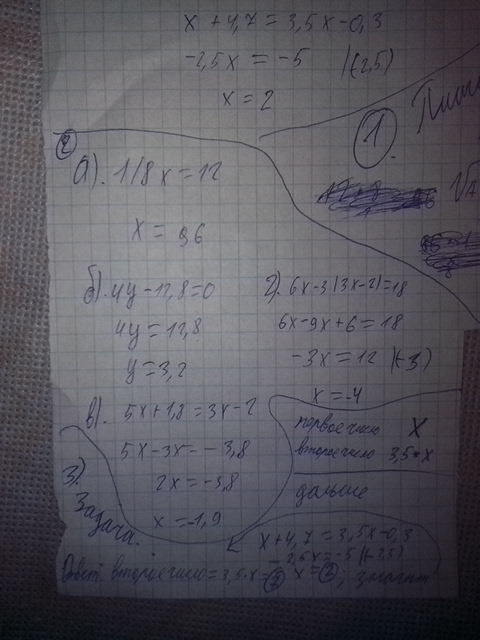 x + 4,7 = 3,5x - 0,3
-2,5x = -5 |(-2,5)
x = 2
1.
2
а). 1/8x = 12
x = 96
б). 4y - 12,8 = 0
4y = 12,8
y = 3,2
в). 5x + 1,8 = 3x - 2
5x - 3x = -3,8
2x = -3,8
x = -1,9
г). 6x - 3(3x - 2) = 18
6x - 9x + 6 = 18
-3x = 12 (-3)
x = -4
3.)
Задача.
первое число x
второе число 3,5*x
дальше
x + 4,7 = 3,5x - 0,3
-2,5x = -5 (-2,5)
x = 2; значит
Ответ: второе число = 3,5·x =